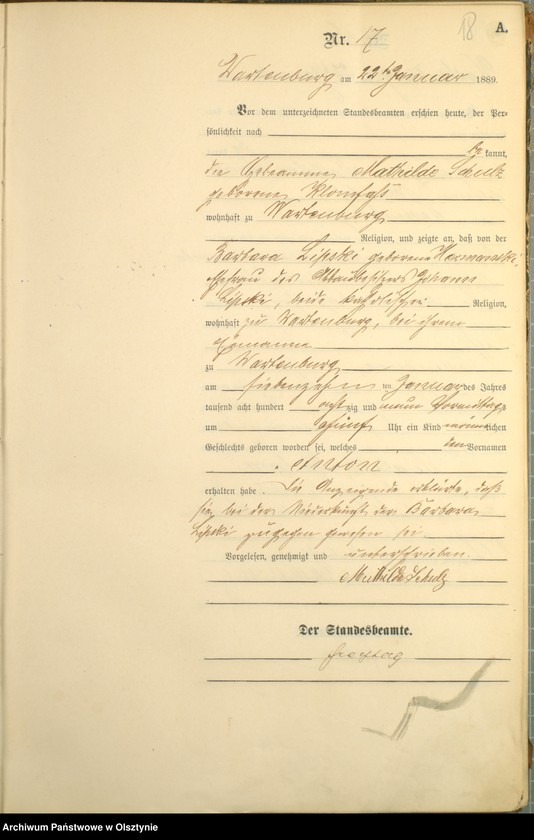 18
A.
Nr. 17
Wartenburg am 22ten Januar 1889.
Vor dem unterzeichneten Standesbeamten erschien heute, der Per-
sönlichkeit nach
be kannt,
die Hebeamme Mathilde Schulz
geborene Klomfaß
wohnhaft zu Wartenburg
Religion, und zeigte an, daß von der
Barbara Lipski geborene Hermanski
Ehefrau des Johann
Lipski, beide katholischer Religion,
wohnhaft zu Wartenburg, bei ihrem
Ehemanne
zu Wartenburg
am siebenzehn ten Januar des Jahres
tausend acht hundert acht zig und neun Vormittags
um fünf Uhr ein Kind männlichen
Geschlechts geboren worden sei, welches den Vornamen
Anton
erhalten habe. Die Anzeigende erklärte, daß
sie bei der Niederkunft der Barbara
Lipski zugegen gewesen sei.
Vorgelesen, genehmigt und unterschrieben
Mathilde Schulz
Der Standesbeamte.
Freytag
Archiwum Państwowe w Olsztynie